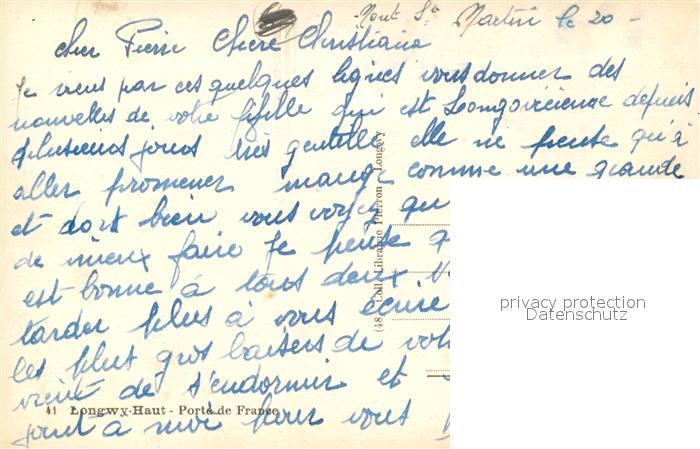 Mont St Martin le 20 -
Cher Pierre Chère Christiane
Je viens par ces quelques lignes vous donner des
nouvelles de votre fifille qui est Longovicienne depuis
plusieurs jours très gentille elle ne pense qu'à
aller promener mange comme une grande
et dort bien vous voyez qu
de mieux faire Je pense q
est bonne à tous deux
tarder plus à vous écrire
les plus gros baisers de vot
vient de s'endormir et
joint à moi pour vous
41 Longwy-Haut - Porte de France
Librairie Pierron Longwy
privacy protection
Datenschutz